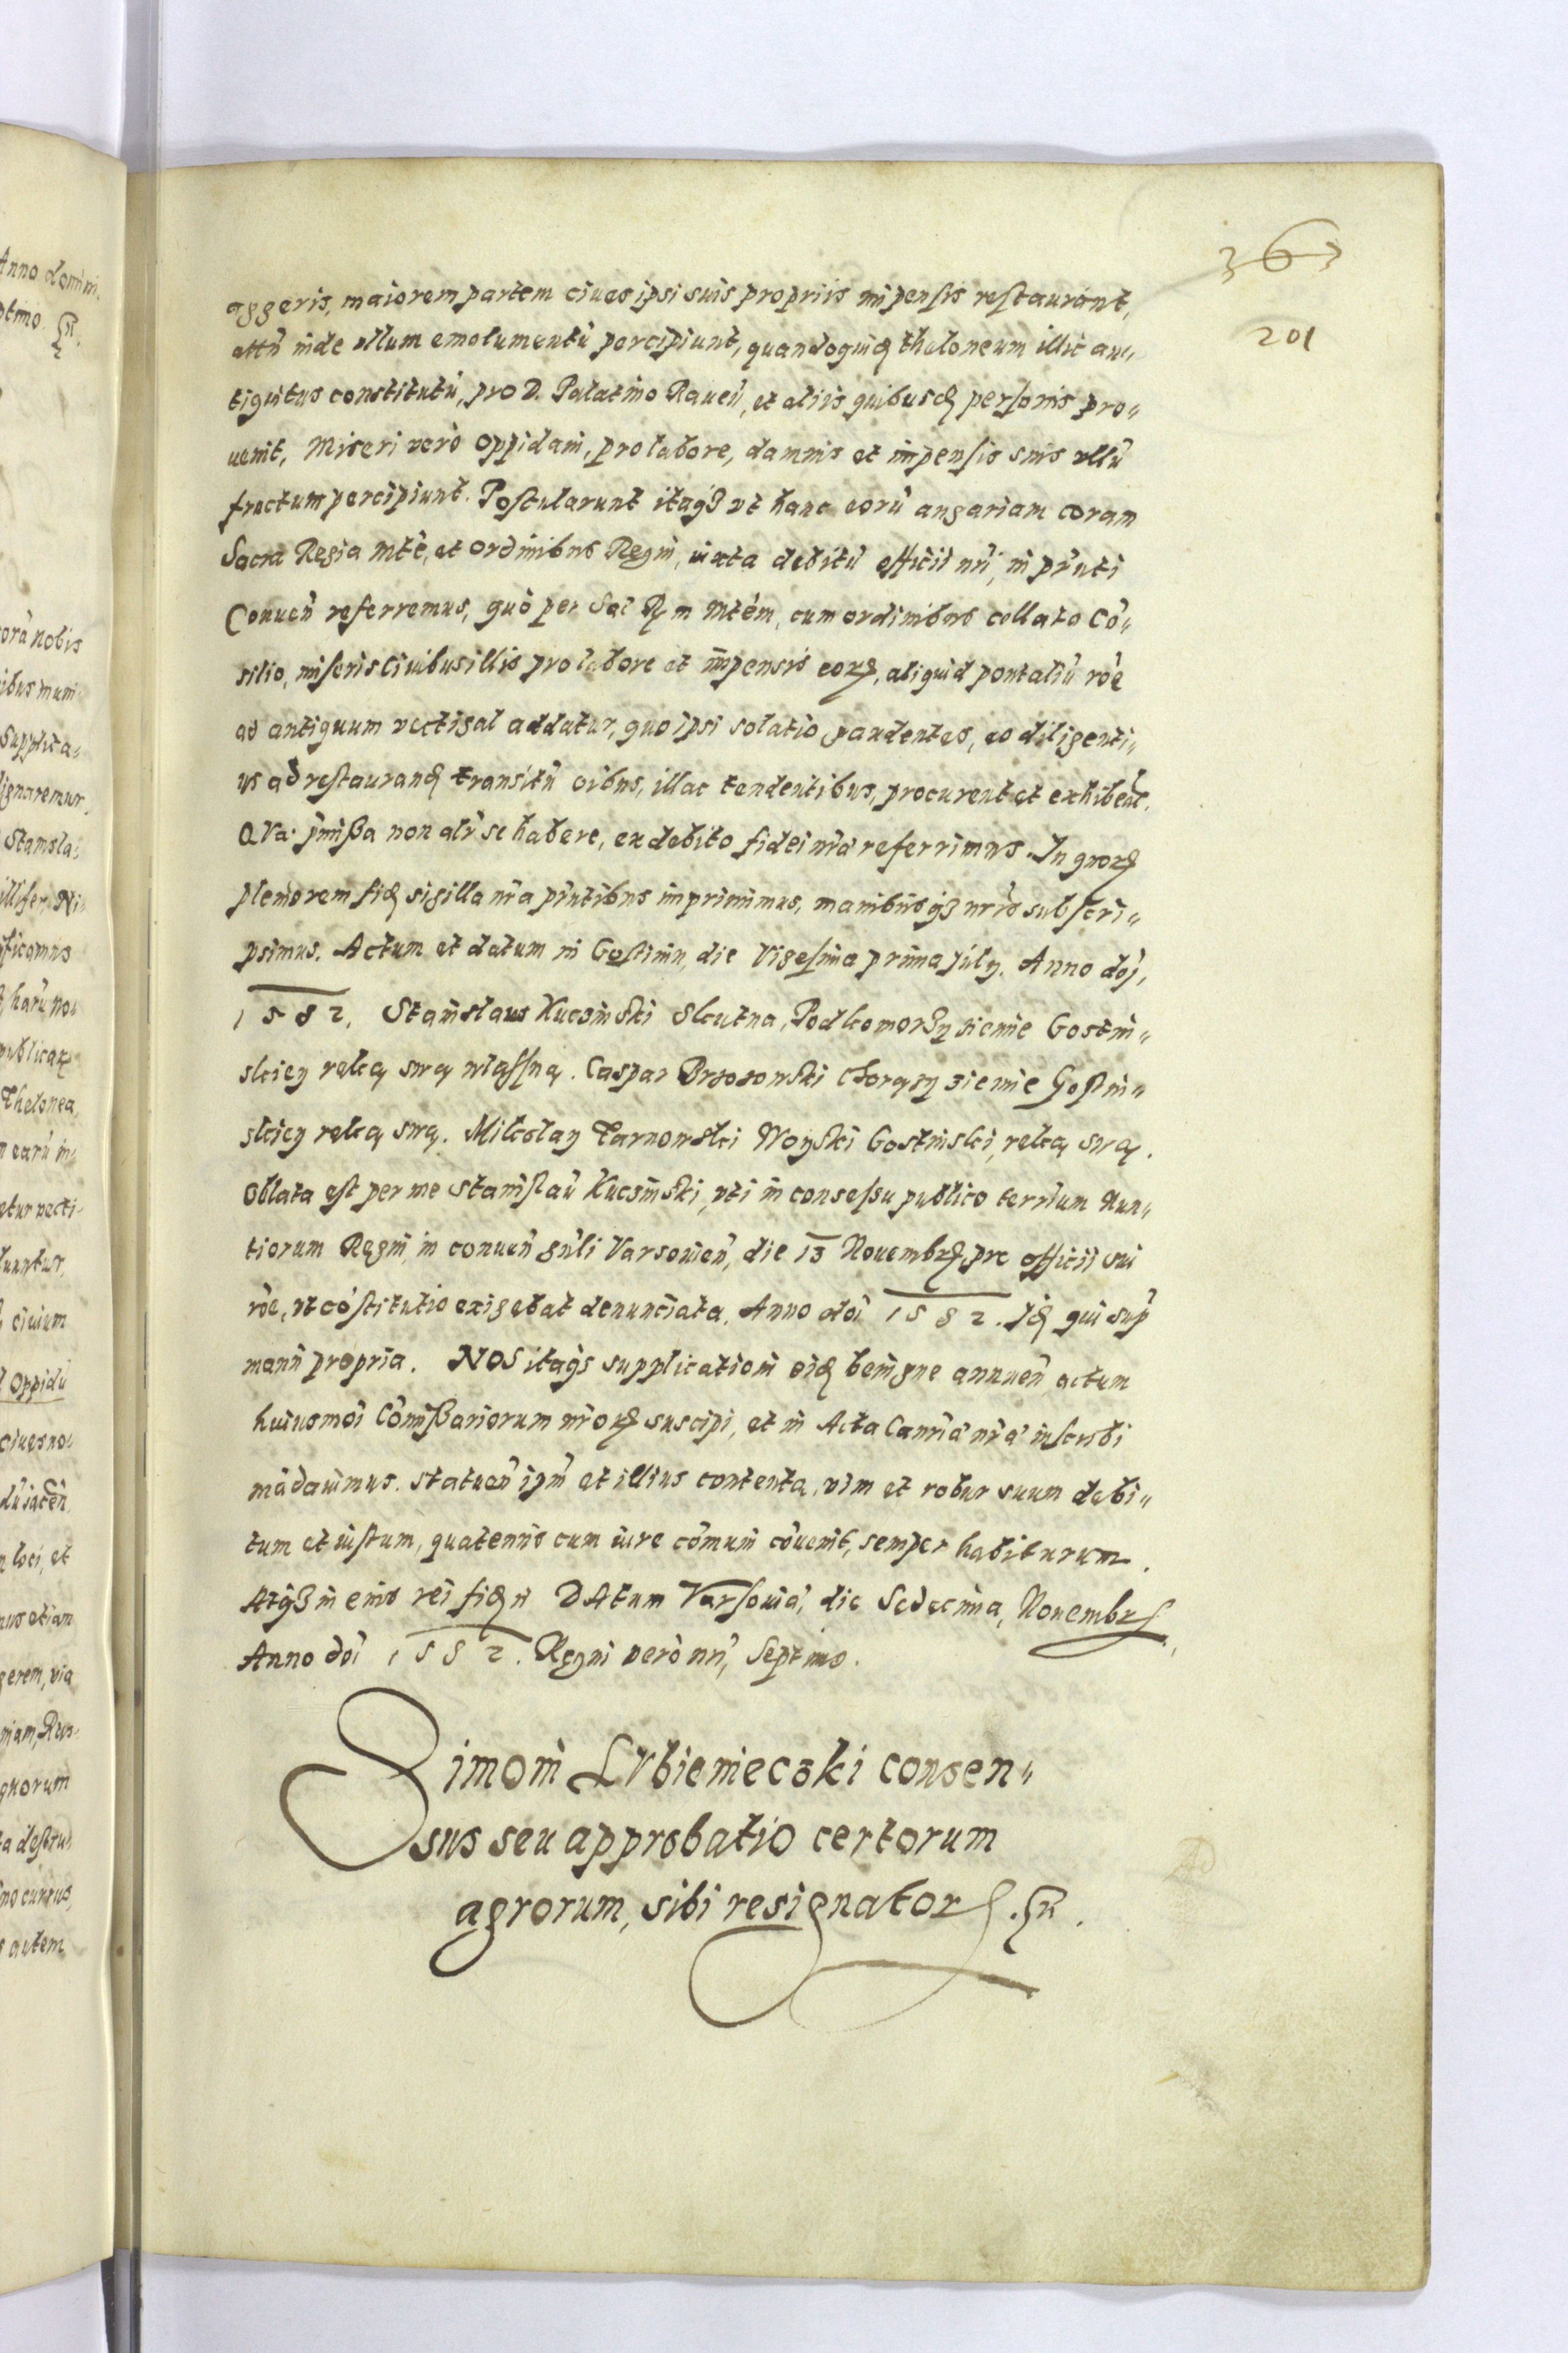 363
201
aggeris, maiorem partem ciues ipsi suis propriis impensis restaurant,
attn̄ inde ullum emolumentū percipiunt, quandoquidē theloneum illic an„
tiquitus constitutū, pro D. Palatino Raueñ, et aliis quibusdā personis pro„
uenit, Miseri verò oppidani, pro labore, damnis et impensis suis ullū
fructum percipiunt. Postularunt itaq3 vt hanc eorū angariam coram
Sacra Regia Mtē, et ordinibus Regni, iuxta debitū officii nr̄i, in pn̄ti
Conueñ referremus, quò per Sac Rm Mtēm, cum ordinibus collato Cō„
silio, miseris ciuibus illis pro labore et impensis eorꝝ, aliquid pontaliū rōe
ad antiquum vectigal addatur, quo ipsi solatio gaudentes, eo diligenti„
us ad restaurandꝫ transitū oībus, illac tendentibus, procurent et exhibeāt.
QVæ prmissa non alr̄ se habere, ex debito fidei nrā referrimus. In quorꝝ
pleniorem fidꝫ sigilla nrā pn̄tibus imprimimus, manibusq3 nrīs subscri„
psimus. Actum et datum in Gostinin, die Vigesima prima July. Anno doī,
1582. Stanislaus Kucsinski Skutna, Podkomorzy ziemie Gostin„
skiey ręką swą własną. Caspar Brzozowski Chorązy ziemie Gostin„
skiey ręką swą. Mikolay Tarnowski Woyski Gostinski, ręką swą.
Oblata est per me Stanislaū Kucsinski, vti in consessu publico terrium Nun„
tiorum Regni, in conueñ gn̄li Varsouieñ, die 13 Nouembrꝭ, pre officii sui
rōe, vt cōstitutio exigebat denunciata, Anno doī 1582. Idꝫ qui supr̄
manū propria. NOS itaq3 supplicationi eidꝫ benigne annueñ actum
huiusmōi Commissariorum nrōꝝ suscipi, et in Acta Canriæ nræ inscribi
mādauimus. statueñ ipm̄ et illius contenta, vim et robur suum debi„
tum et iustum, quatenus cum iure cōmuni cōuenit, semper habiturum.
Atq3 in eius rei fidꝫ n DAtum Varsouiæ, die Sedecima, Nouembrꝭ,
Anno doī 1582. Regni verò nrī, Septimo.
Simoni LVbieniecski consen„
sus seu approbatio certorum
agrorum, sibi resignatorꝝ.